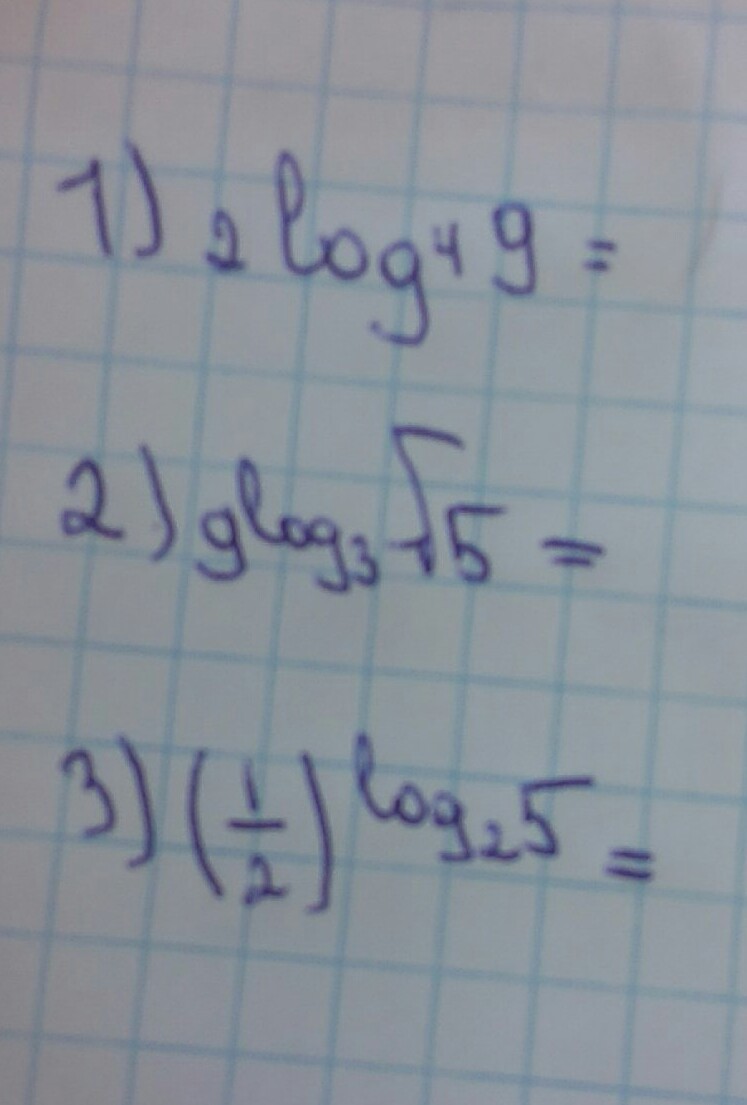 1) 2 log⁴ 9 =
2) 9log₃ √5 =
3) (1/2)^log₂5 =